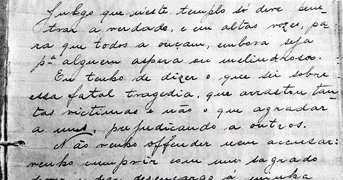 Julgo que n'este templo só deve pene-
trar a verdade, e em altas vozes, pa-
ra que todos a ouçam, embora seja
pª alguem aspera ou melindrosa.
Em tenho de dizer o que sei sobre
essa fatal tragedia, que arrastou tan-
tas victimas e não o que agradar
a uns, prejudicando a outros.
Não venho offender nem accusar:
venho cumprir com um sagrado
dever e dar descargo á minha